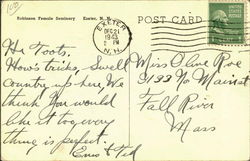 Robinson Female Seminary Exeter, N. H.
POST CARD
EXETER
DEC 21
1943
N.H.
Hi Toots,
How's tricks, Swell
Country up here. We
think you would
like it too, every
thing is perfect.
Miss Olive Roe
3133 No Main st
Fall River
Mass